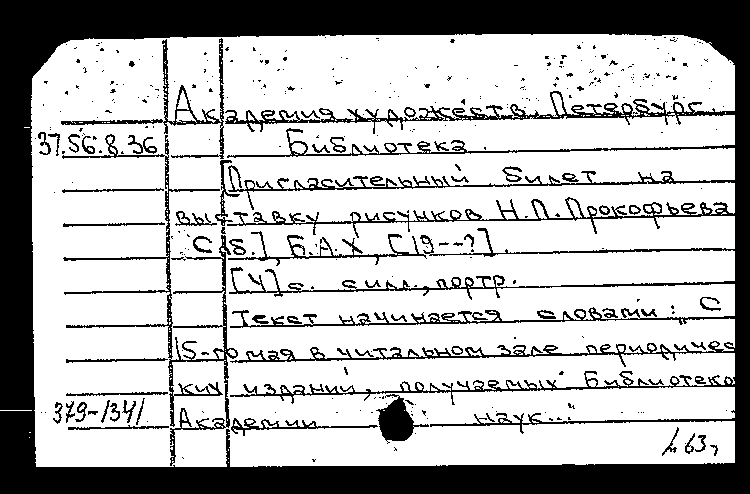 Академия художеств. Петербург.
37.56.8.36 Библиотека.
[Пригласительный билет на
выставку рисунков Н.П. Прокофьева
С[б.], Б.А.Х, [19--?].
[4] с. с илл., портр.
Текст начинается словами: „С
15-го мая в читальном зале периодичес
ких изданий, получаемых Библиотеко
379-1341 Академии наук..."
63